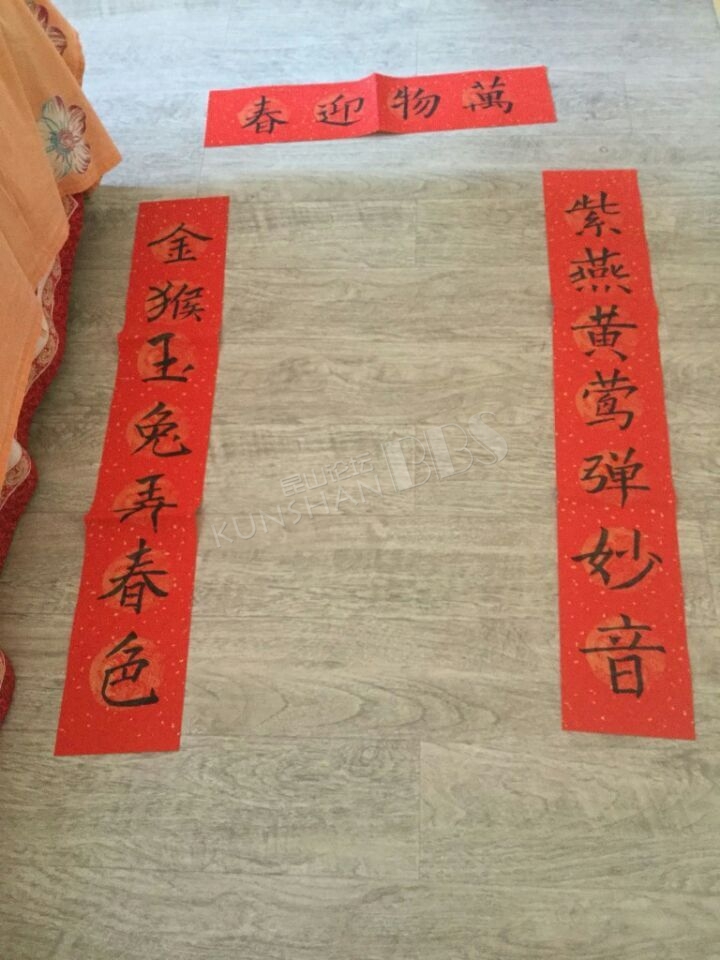 萬物迎春
紫燕黄莺弹妙音
金猴玉兔弄春色
昆山论坛
KUNSHAN BBS